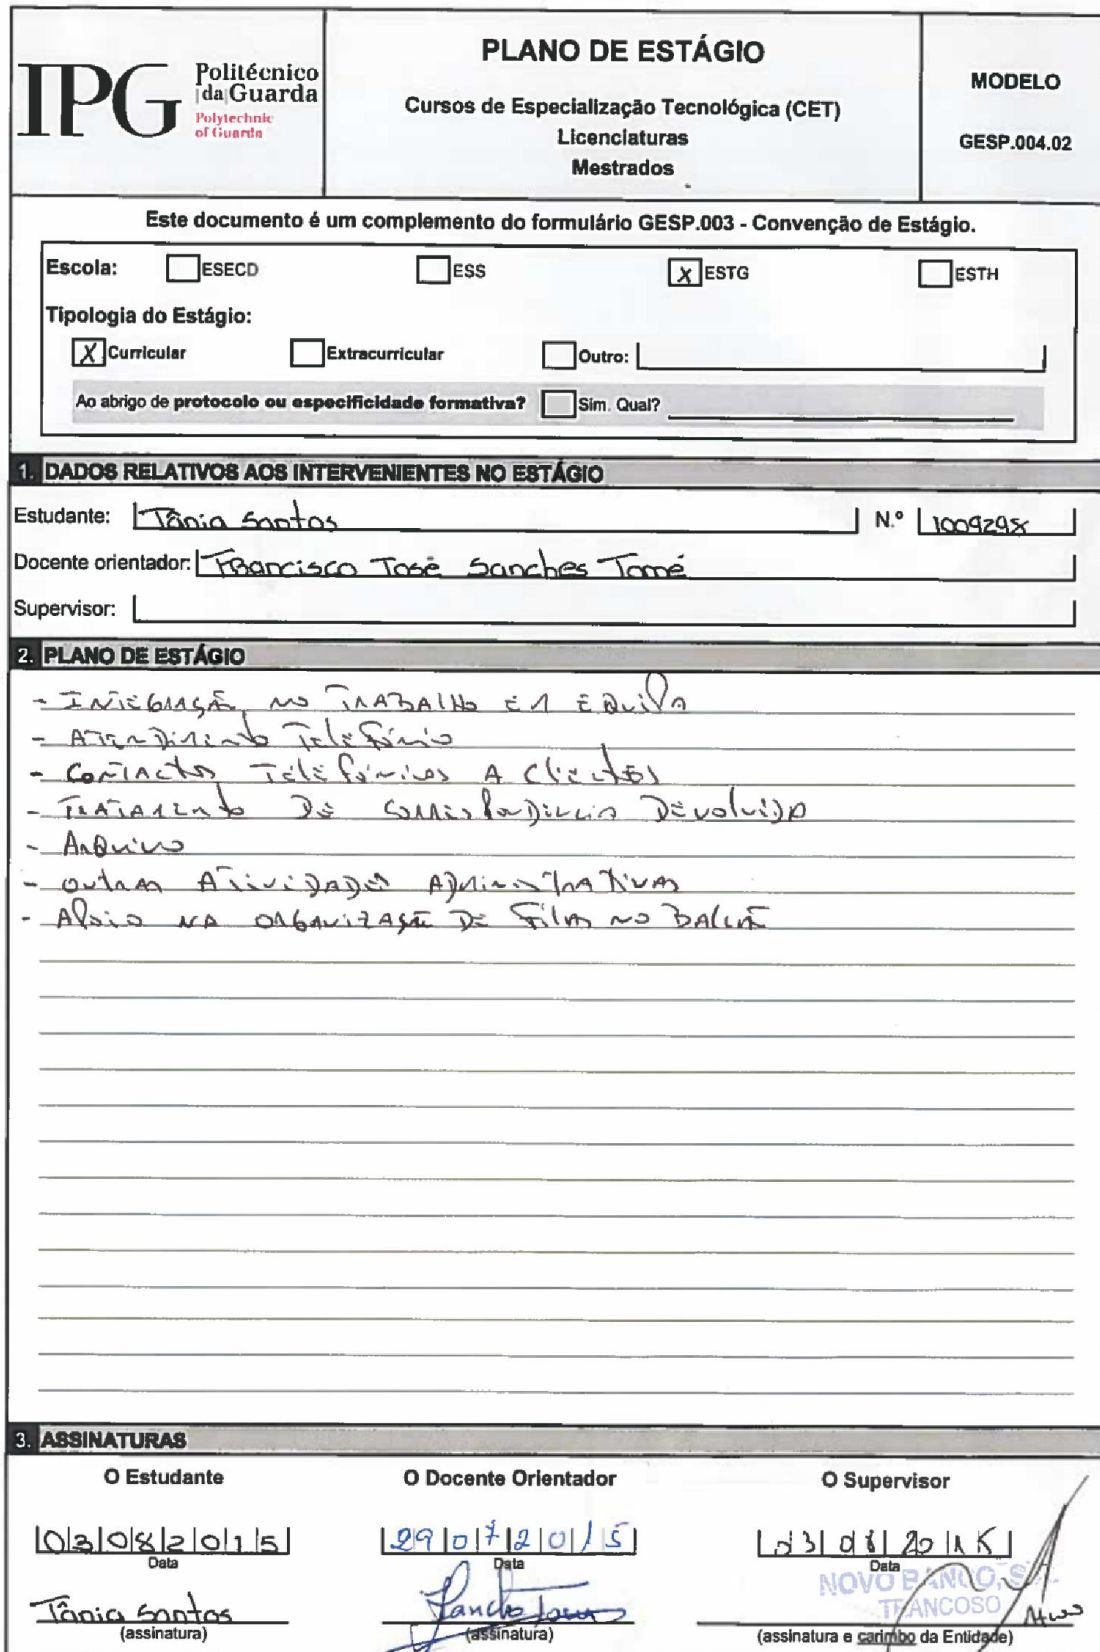 IPG Politécnico da Guarda
Polytechnic of Guarda
PLANO DE ESTÁGIO
Cursos de Especialização Tecnológica (CET)
Licenciaturas
Mestrados
MODELO
GESP.004.02
Este documento é um complemento do formulário GESP.003 - Convenção de Estágio.
Escola: ESECD ESS X ESTG ESTH
Tipologia do Estágio:
X Curricular Extracurricular Outro:
Ao abrigo de protocolo ou especificidade formativa? Sim. Qual?
1. DADOS RELATIVOS AOS INTERVENIENTES NO ESTÁGIO
Estudante: Tânia Santos N.º 1009298
Docente orientador: Francisco José Sanches Tomé
Supervisor:
2. PLANO DE ESTÁGIO
- Integração no trabalho em equipa
- Atendimento Telefónio
- Contactos Telefónicos a Clientes
- Tratamento de correspondência Devolvida
- Arquivo
- Outras Atividades Administrativas
- Apoio na organização de Filas no Balcão
3. ASSINATURAS
O Estudante O Docente Orientador O Supervisor
03082015 29072015
Data Data Data
NOVO BANCO, S.A.
TRANCOSO
Tânia Santos
(assinatura) (assinatura) (assinatura e carimbo da Entidade)